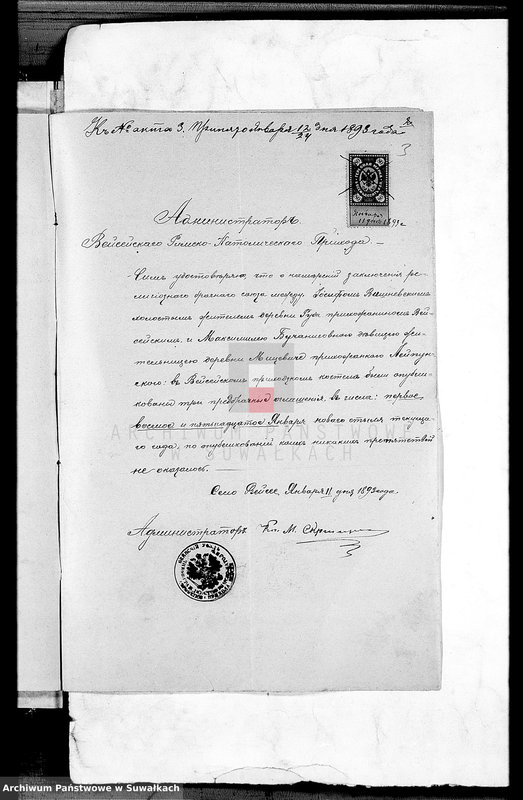 Къ № акта 3. Января 12/24 дня 1893 года
3
Января
11 дня 1893 г
Администраторъ
Вейсейскаго Римско-Католическаго Прихода
Симъ удостовѣряю, что о намѣреніи заключенія ре-
лигіознаго брачнаго союза между: Іосифомъ Вишневскимъ
холостымъ жителемъ деревни Руда прихожаниномъ Вей-
сейскимъ и Максимиліею дѣвицею жи-
тельницею деревни прихожанкою
въ Вейсейскомъ приходскомъ костелѣ были опубли-
кованы три предбрачныя оглашенія въ числа: первое
восьмое и пятнадцатое Января новаго стиля текуща-
го года, по опубликованіи коихъ никакихъ препятствій
не оказалось.
Село Вейсее, Января 11 дня 1893 года.
Администраторъ Кс. М.
ARCHIWUM PAŃSTWOWE
W SUWAŁKACH
Archiwum Państwowe w Suwałkach